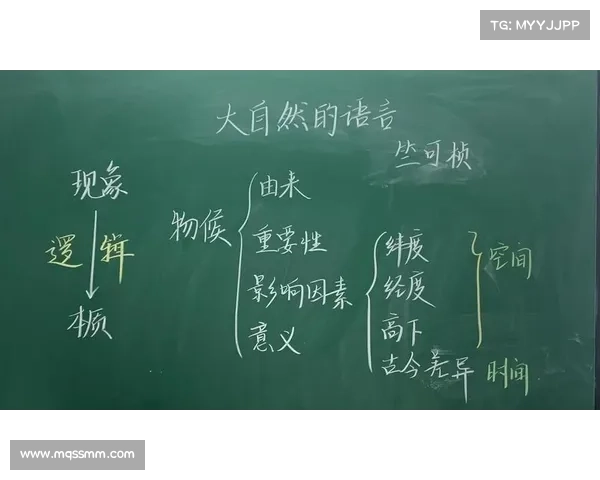 TG: MYYJJPP
大自然的语言
竺可桢
现象
逻辑
本质
物候
由来
重要性
影响因素
意义
纬度
经度
高下
古今差异
空间
时间
www.mqssmm.com